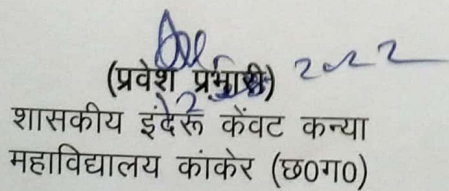 (प्रवेश प्रभारी) 2022
शासकीय इंदरू केंवट कन्या
महाविद्यालय कांकेर (छ0ग0)